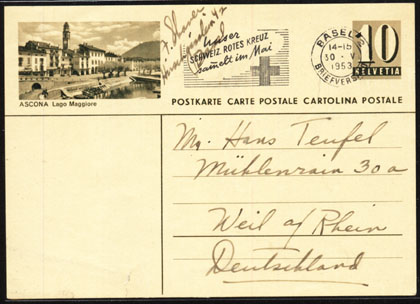 Unser
SCHWEIZ. ROTES KREUZ
sammelt im Mai
BASEL 2
14-15
30. V.
1953
BRIEFVERSAND
10
HELVETIA
ASCONA Lago Maggiore
POSTKARTE CARTE POSTALE CARTOLINA POSTALE
Mr. Hans Teufel
Mühlenrain 30a
Weil a/Rhein
Deutschland